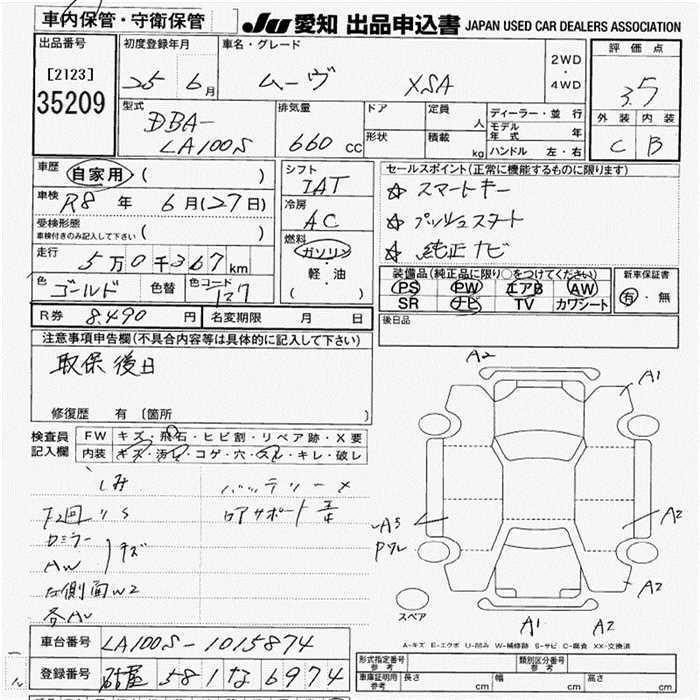 車内保管・守衛保管
JU 愛知 出品申込書 JAPAN USED CAR DEALERS ASSOCIATION
出品番号
[2123]
35209
初度登録年月
25 6月
車名・グレード
ムーヴ XSA
2WD
・
4WD
評価点
3.5
外装 内装
C B
型式
DBA-
LA100S
排気量
660 cc
ドア
形状
定員
人
積載
kg
ディーラー・並行
モデル年式 年
ハンドル 左・右
車歴
自家用 ( )
車検
R8 年 6月(27日)
受検形態
車検付きのみ記入して下さい ( )
走行
5万0千367km
色 ゴールド 色替 色コード 127
シフト
IAT
冷房
AC
燃料
ガソリン
軽・油
( )
セールスポイント(正常に機能するものに限ります)
☆ スマートキー
☆ プッシュスタート
☆ 純正ナビ
装備品(純正品に限り○をつけてください)
PS PW エアB AW
SR ナビ TV カワシート
新車保証書
有・無
R券 8,490 円 名変期限 月 日
後日品
注意事項申告欄(不具合内容等は具体的に記入して下さい)
取保後日
修復歴 有 〔箇所 〕
検査員
記入欄
FW キズ・飛石・ヒビ割・リペア跡・X要
内装 キズ・汚レ・コゲ・穴・スレ・キレ・破レ
シミ
バッテリーメ
ロアサポート
ドミラー
AW
キズ
右側面W2
A2
A1
A2
A2
A1
A2
スペア
A-キズ E-エクボ U-凹み W-補修跡 S-サビ C-腐食 XX-交換済
車台番号 LA100S-1015874
登録番号 581 な 6974
形式指定番号
参考
類別区分番号
参考
車庫証明用
参考
長さ cm
幅 cm
高さ cm